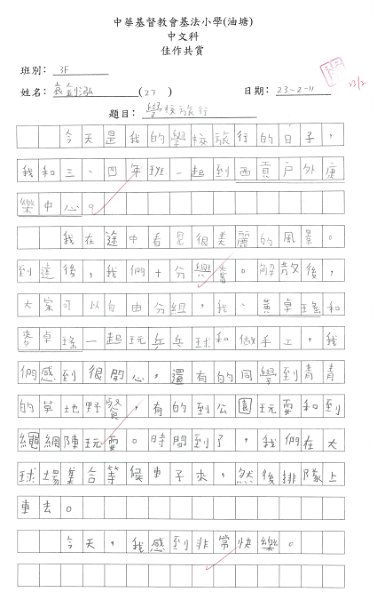 中華基督教會基法小學(油塘)
中文科
佳作共賞
班別: 3F
姓名: 袁劍泓 (27) 日期: 23-2-11
23/2
題目: 學校旅行
今天是我的學校旅行的日子，
我和三、四年班一起到西貢戶外康
樂中心。
我在途中看見很美麗的風景。
到達後，我們十分興奮。解散後，
大家可以自由分組，我、黃卓瑤和
卓瑤一起玩乒乓球和做手工，我
們感到很開心，還有的同學到青青
的草地野餐，有的到公園玩耍和到
繩網陣玩耍。時間到了，我們在大
球場集合等候車子來，然後排隊上
車去。
今天，我感到非常快樂。